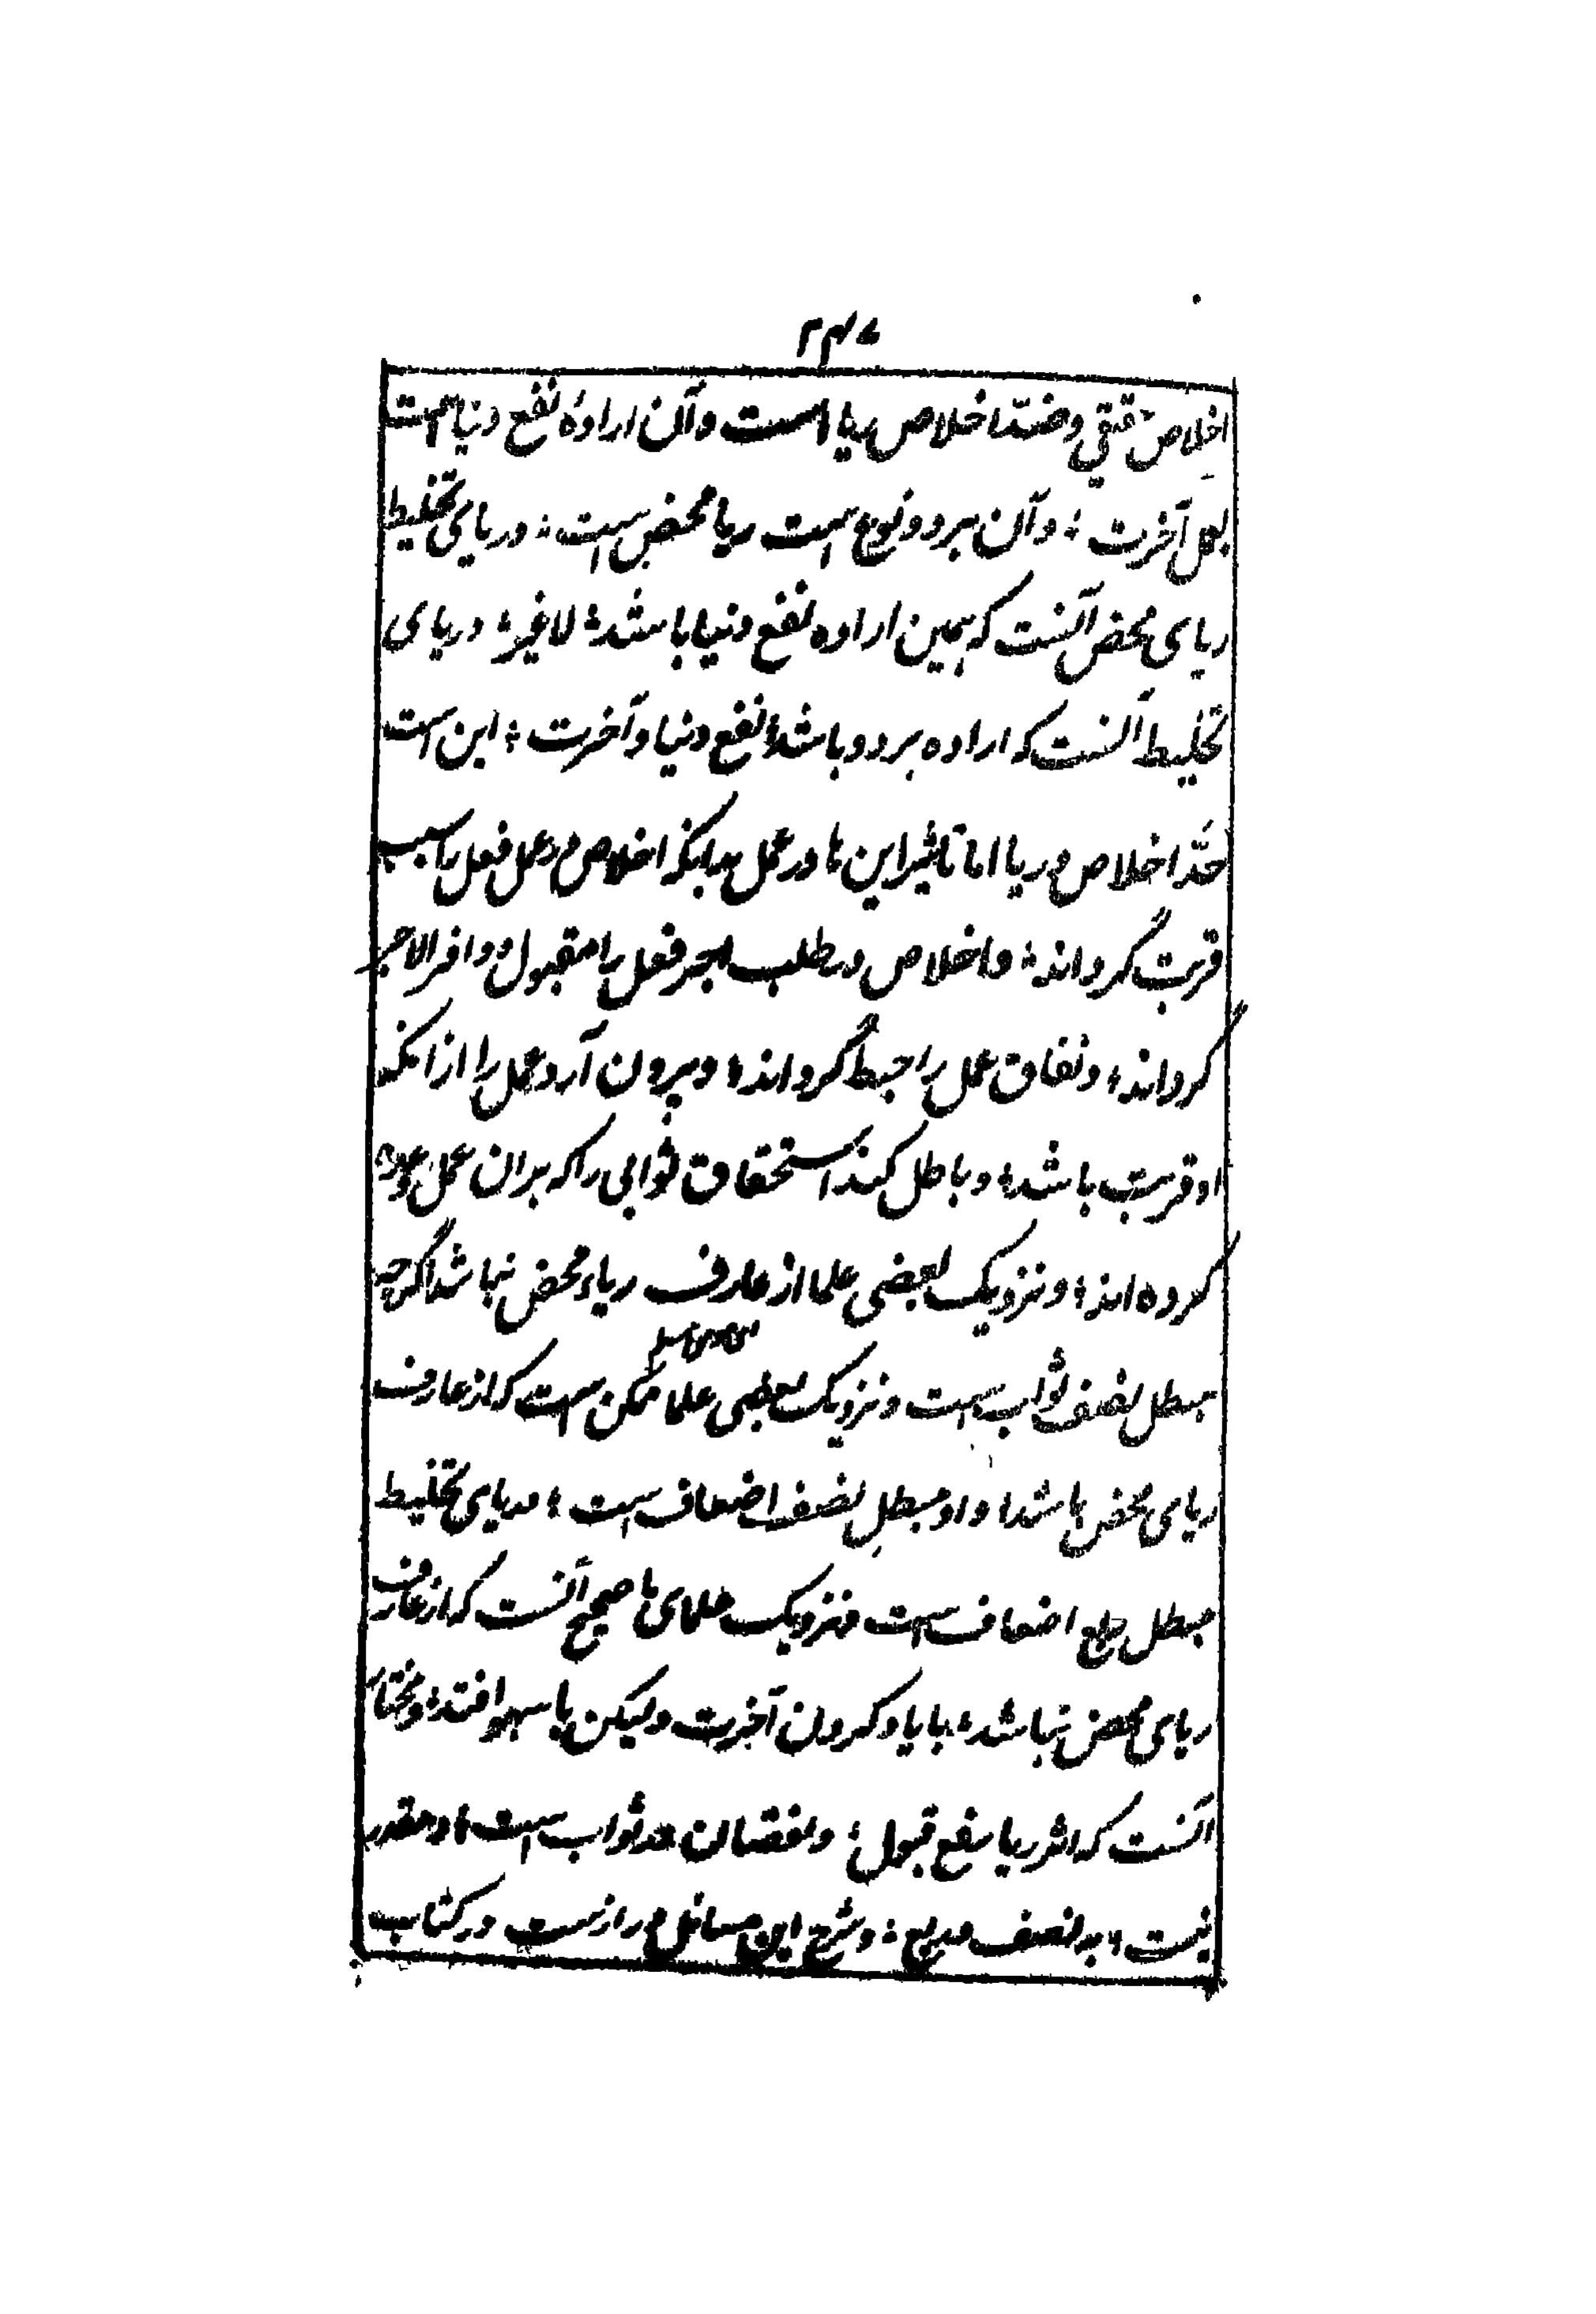 ۲۴۷
اخلاص حقیقی وضدّ اخلاص ریا است وآن ارادهٔ نفع دنیا است
بعمل آخرت ؛ وآن بر دو نوع است ریا محض است ؛ وریای تخلیط
ریای محض آنست که همین اراده نفع دنیا باشد ؛ لا غیر ؛ وریای
تخلیط آنست که اراده هر دو باشد نفع دنیا وآخرت ؛ این است
حدّ اخلاص وریا اما تاثیر این ها در عمل بدانکه اخلاص در عمل فعل را سبب
قربت گرداند ؛ واخلاص در طلب اجر فعل را مقبول و وافر الاجر
گرداند ؛ ونفاق عمل را حبط گرداند ؛ وبیرون آرد عمل را از انکه
او قربت باشد ؛ وباطل کند استحقاق ثوابی را که بران عمل وعده
کرده اند ؛ ونزدیک بعضی علما از عارف ریاء محض نباشد اگرچه
مبطل نصف ثواب است ونزدیک بعضی علما ممکن است که از عارف
ریای محض باشد واو مبطل نصف اضعاف است ؛ وریای تخلیط
مبطل ربع اضعاف است ونزدیک علمای ما صحیح آنست که از عارف
ریای محض نباشد ؛ با یاد کردن آخرت ولیکن با سهو افتد ؛ ومختار
آنست که اثر ریا رفع قبول ؛ ونقصان در ثواب است ؛ ومقدر
نیست ؛ به نصف وربع ؛ وشرح این مسائل دراز ست در کتاب